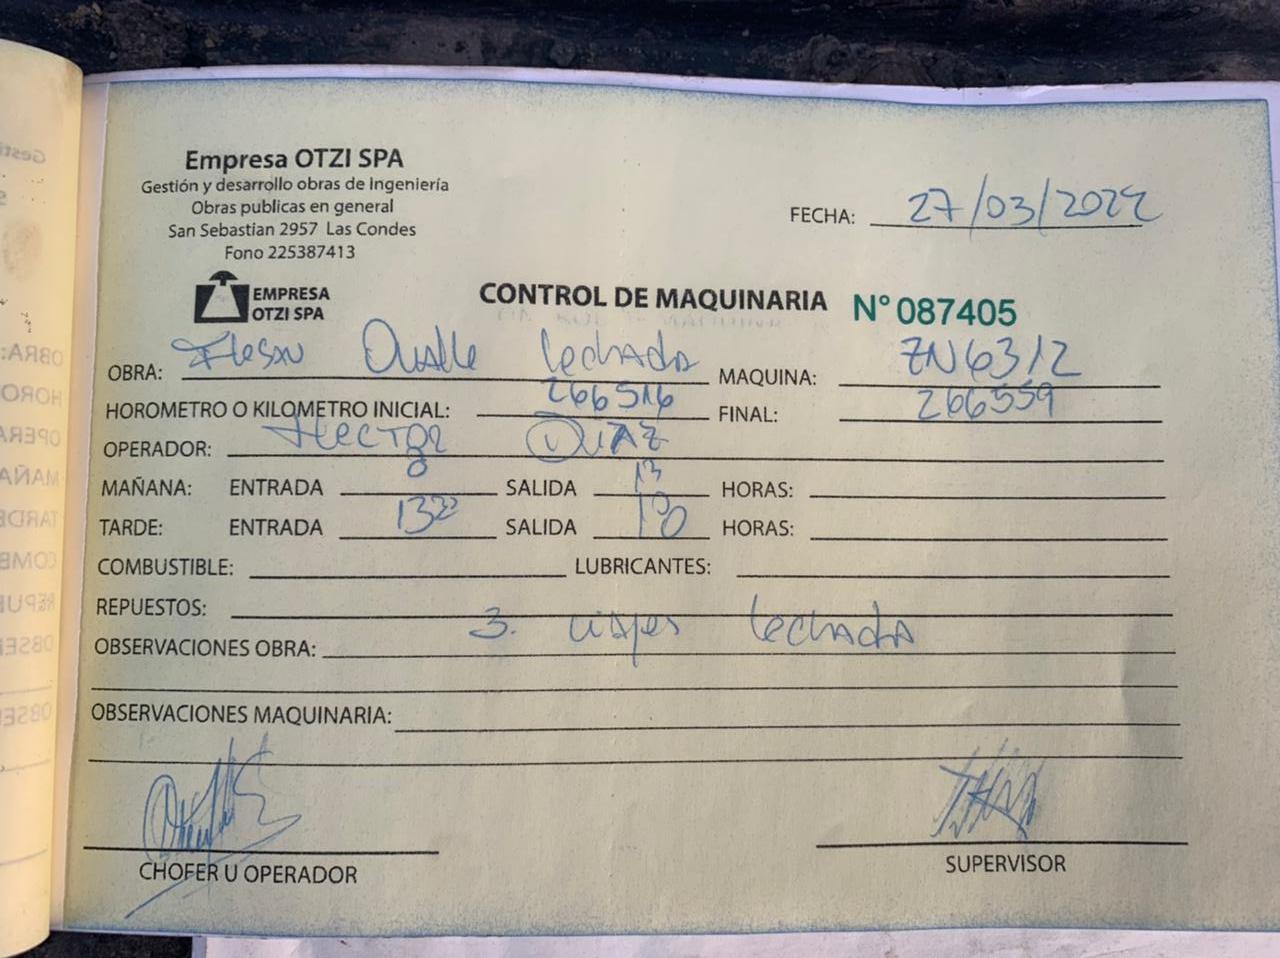 Empresa OTZI SPA
Gestión y desarrollo obras de Ingeniería
Obras publicas en general
San Sebastian 2957 Las Condes
Fono 225387413
FECHA: 27/03/2024
EMPRESA
OTZI SPA
CONTROL DE MAQUINARIA N° 087405
OBRA: Ovalle lechada MAQUINA: ZN6312
HOROMETRO O KILOMETRO INICIAL: 266516 FINAL: 266559
OPERADOR: Hector Diaz
MAÑANA: ENTRADA 8 SALIDA 13 HORAS:
TARDE: ENTRADA 13 SALIDA HORAS:
COMBUSTIBLE: LUBRICANTES:
REPUESTOS:
OBSERVACIONES OBRA: 3. viajes lechada
OBSERVACIONES MAQUINARIA:
CHOFER U OPERADOR SUPERVISOR